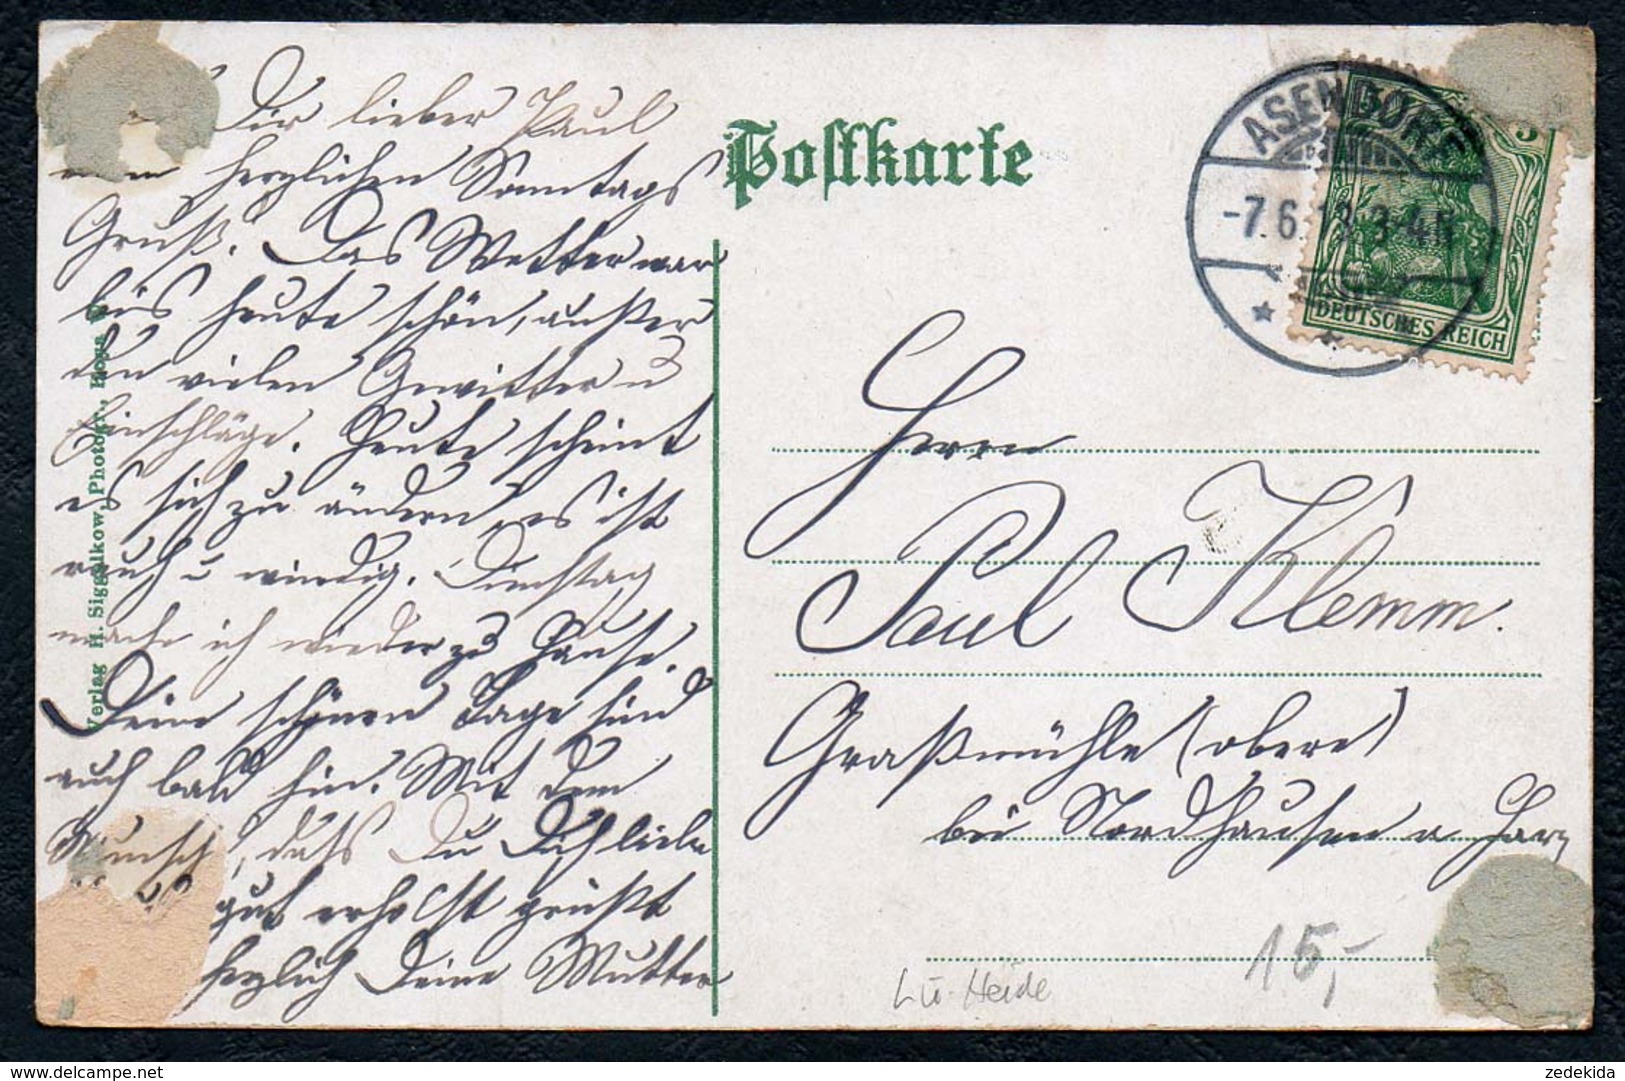 Dir lieber Paul
einen herzlichen Sonntags
Gruß. Das Wetter war
bis heute schön, außer
den vielen Gewitter u
Einschläge. Heute scheint
es sich zu ändern, es ist
rauh u windig. Dienstag
mache ich wieder zu Hause.
Deine schönen Tage sind
auch bald hin. Mit dem
Wunsch, daß Du Dich lieber
gut erholst grüßt
herzlich Deine Mutter
Verlag H. Siggelkow, Photogr., Hoya
Postkarte
ASENDORF
-7.6.13.3-4N
5 5
DEUTSCHES REICH
Herrn
Paul Klemm.
Graßmühle (obere)
bei Nordhausen a Harz
Lü-Heide
15,-
zedekida